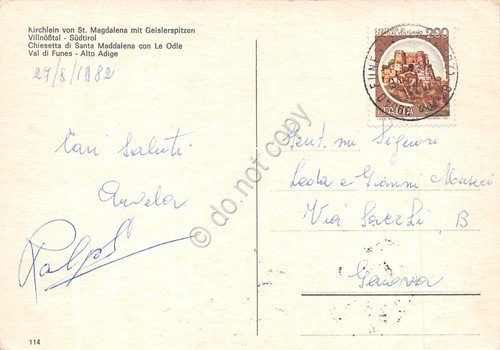 Kirchlein von St. Magdalena mit Geislerspitzen
Villnößtal - Südtirol
Chiesetta di Santa Maddalena con Le Odle
Val di Funes - Alto Adige
27/8/1982
Cari Saluti
Ralph
114
200
FUNES
Gent. mi Signori
Leda e Gianni
Via Sacchi, B
Genova
© do not copy